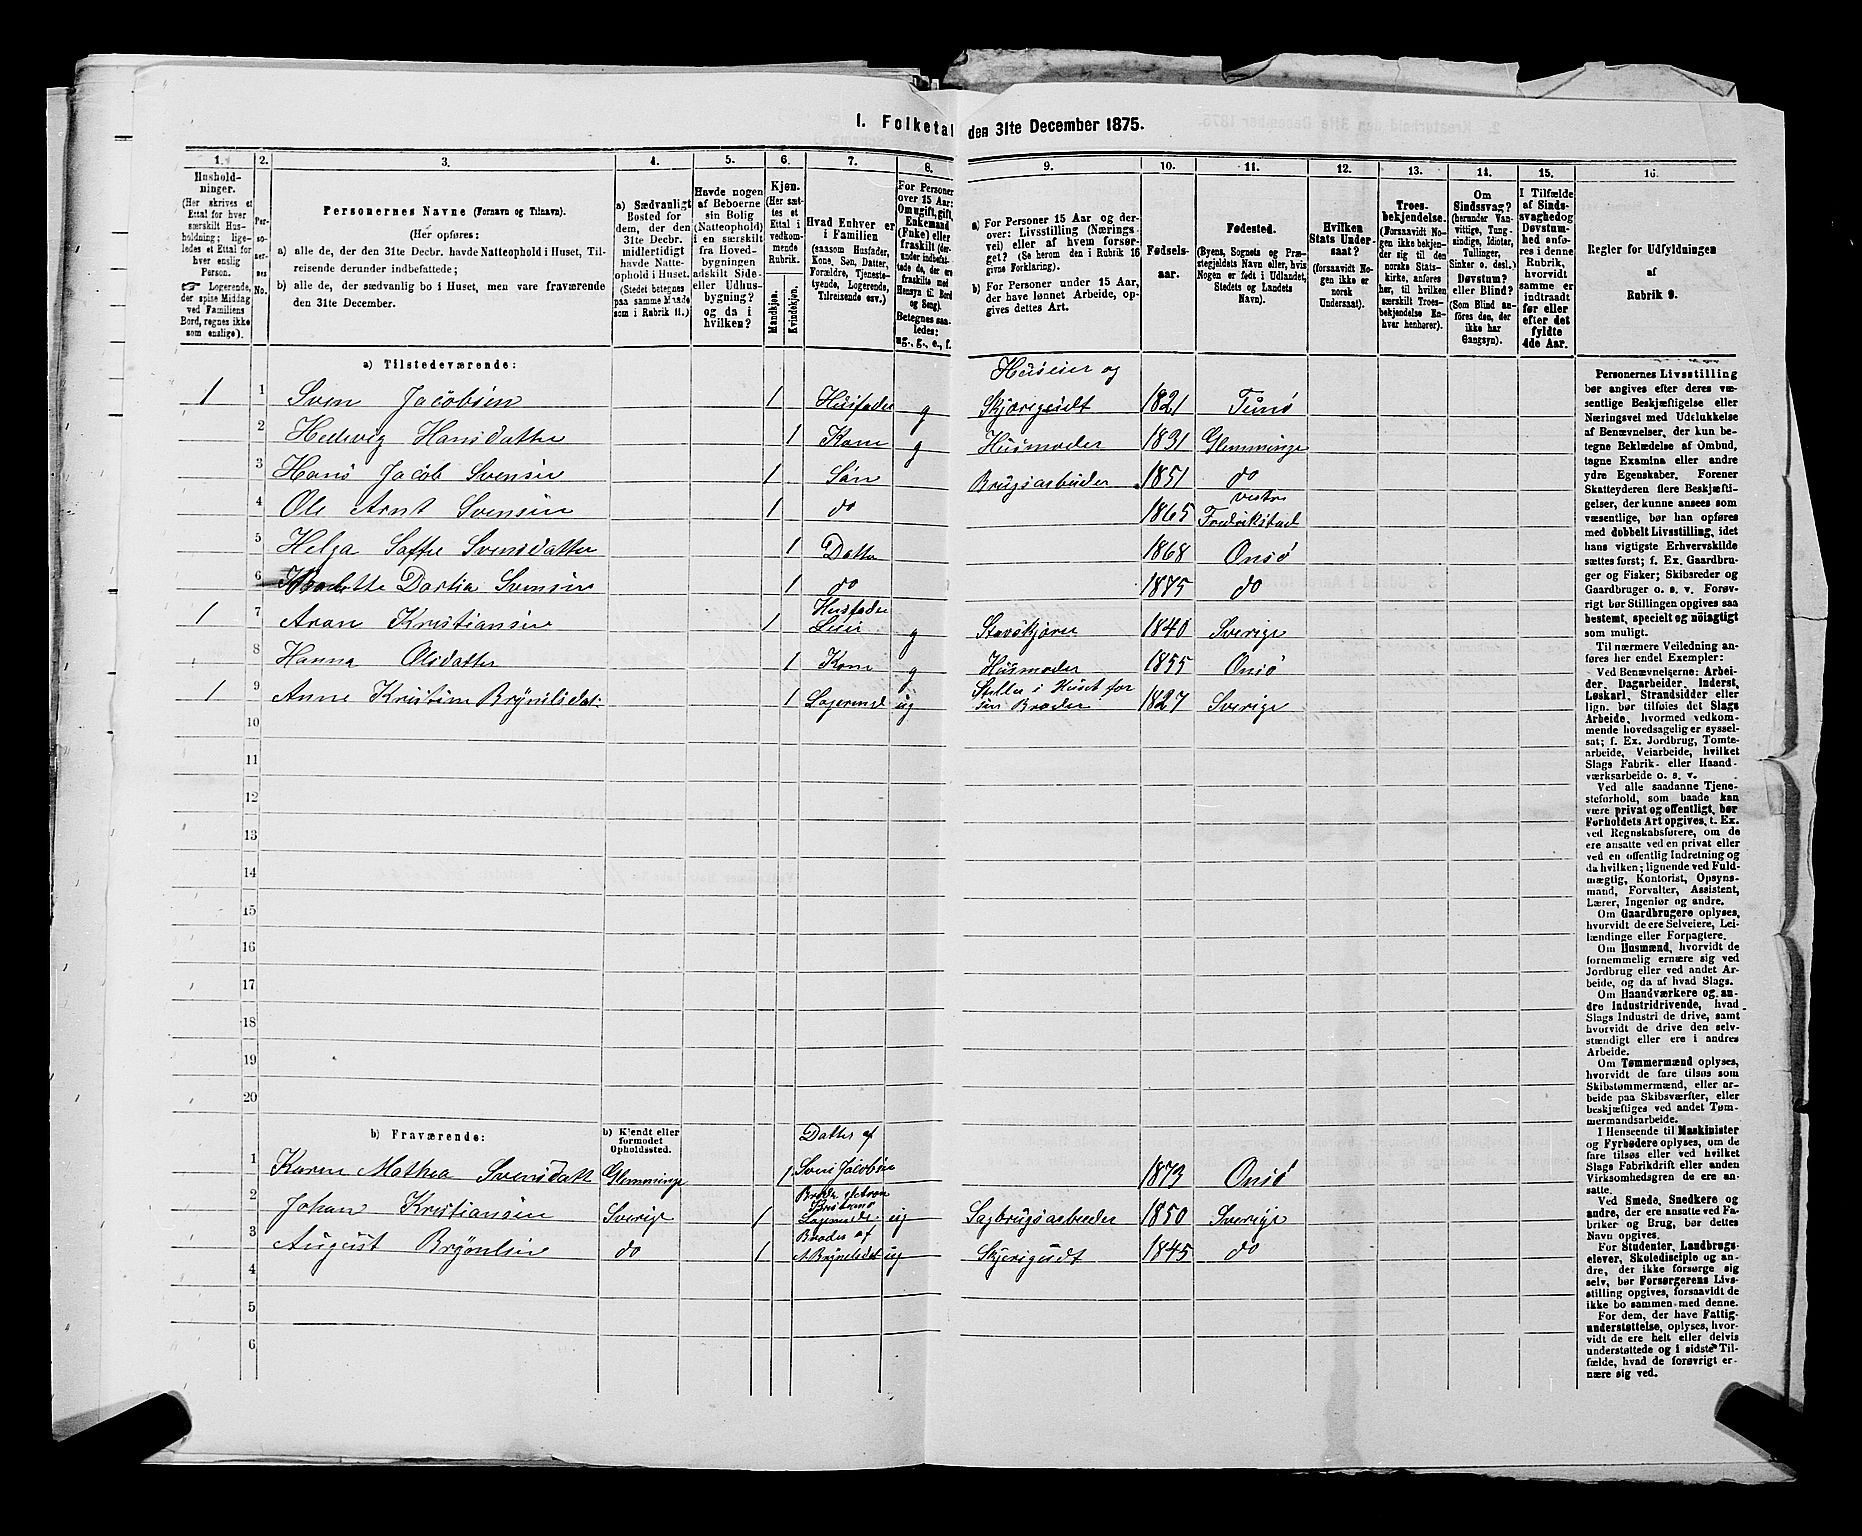 1. Folketal den 31te December 1875.
1. 2. 3. 4. 5. 6. 7. 8. 9. 10. 11. 12. 13. 14. 15. 16.
Hushold-
ninger.
(Her skrives et
Ettal for hver
særskilt Hus-
holdning; lige-
ledes et Ettal for
hver enslig
Person.
☞ Logerende,
der spise Middag
ved Familiens
Bord, regnes ikke
som enslige).
Per-
so-
ner-
nes
No.
Personernes Navne (Fornavn og Tilnavn).
(Her opføres:
a) alle de, der den 31te Decbr. havde Natteophold i Huset, Til-
reisende derunder indbefattede;
b) alle de, der sædvanlig bo i Huset, men vare fraværende
den 31te December.
a) Sædvanligt
Bosted for
dem, der den
31te Decbr.
midlertidigt
havde Natte-
ophold i Huset.
(Stedet betegnes
paa samme Maade
som i Rubrik 11.)
Havde nogen
af Beboerne
sin Bolig
(Natteophold)
i en særskilt
fra Hoved-
bygningen
adskilt Side-
eller Udhus-
bygning?
og da i
hvilken?
Kjøn.
(Her sæt-
tes et
Ettal i
vedkom-
mende
Rubrik.
Mandkjøn.
Kvindekjøn.
Hvad Enhver er
i Familien
(saasom Husfader,
Kone, Søn, Datter,
Forældre, Tjeneste-
tyende, Logerende,
Tilreisende osv.)
For Personer
over 15 Aar:
Om ugift, gift,
Enkemand
(Enke) eller
fraskilt (der-
under indbefat-
tede de, der ere
fraskilte med
Hensyn til Bord
og Seng).
Betegnes saa-
ledes:
ug., g., e., f.
a) For Personer 15 Aar og der-
over: Livsstilling (Nærings-
vei) eller af hvem forsør-
get? (Se herom den i Rubrik 16
givne Forklaring).
b) For Personer under 15 Aar,
der have lønnet Arbeide, op-
gives dettes Art.
Fødsels-
aar.
Fødested.
(Byens, Sognets og Præ-
stegjeldets Navn eller, hvis
Nogen er født i Udlandet,
Stedets og Landets
Navn).
Hvilken
Stats Under-
saat?
(forsaavidt No-
gen ikke er
norsk
Undersaat).
Troes-
bekjendelse.
(Forsaavidt No-
gen ikke bekjen-
der sig til den
norske Stats-
kirke, anføres
her, til hvilken
særskilt Troes-
bekjendelse En-
hver henhører).
Om
Sindssvag?
(herunder Van-
vittige, Tung-
sindige, Idioter,
Tullinger,
Sinker o. desl.)
Døvstum?
eller Blind?
(Som Blind an-
føres den, der
ikke har
Gangsyn).
I Tilfælde
af Sinds-
svaghed og
Døvstum-
hed anfø-
res i denne
Rubrik,
hvorvidt
samme er
indtraadt
før eller
efter det
fyldte
4de Aar.
Regler for Udfyldningen
af
Rubrik 9.
a) Tilstedeværende:
Huseier og
1 1 Sven Jacobsen 1 Husfader g Skjærigsidt 1821 Tunø
2 Hedevig Hansdatter 1 Kone g Husmoder 1831 Glemminge
3 Hans Jacob Svensen 1 Søn Brugsarbeider 1851 do
vestre
4 Ole Arnt Svensen 1 do 1865 Fredrikstad
5 Helga Soffie Svensdatter 1 Datter 1868 Onsø
6 Dortia Svensen 1 do 1875 do
Husfader
1 7 Aron Kristiansen 1 Leier g Stavskjører 1840 Sverige
8 Hanna Olsdatter 1 Kone g Husmoder 1855 Onsø
Steller i Huset for
1 9 Anne Kristine Brynildsdat. 1 Logerend ug sin Broder 1827 Sverige
10
11
12
13
14
15
16
17
18
19
20
b) Fraværende:
b) Kjendt eller
formodet
Opholdssted.
Datter af
1 Karen Mathea Svensdatt Glemminge 1 Sven Jacobsen 1873 Onsø
Broder af Aron
Kristians
2 Johan Kristiansen Sverige 1 Logerende ug Sagbrugsarbeider 1850 Sverige
Broder af
3 August Brynlsen do 1 A Brynelsdat ug Skjerigsidt 1845 do
4
5
6
Personernes Livsstilling
bør angives efter deres væ-
sentlige Beskjæftigelse eller
Næringsvei med Udelukkelse
af Benævnelser, der kun be-
tegne Beklædelse af Ombud,
tagne Examina eller andre
ydre Egenskaber. Forener
Skatteyderen flere Beskjæfti-
gelser, der kunne ansees som
væsentlige, bør han opføres
med dobbelt Livsstilling, idet
hans vigtigste Erhvervskilde
sættes først; f. Ex. Gaardbru-
ger og Fisker; Skibsreder og
Gaardbruger o. s. v. Forøv-
rigt bør Stillingen opgives saa
bestemt, specielt og nöiagtigt
som muligt.
Til nærmere Veiledning an-
føres her endel Exempler:
Ved Benævnelserne: Arbei-
der, Dagarbeider, Inderst,
Løskarl, Strandsidder eller
lign. bør tilføies det Slags
Arbeide, hvormed vedkom-
mende hovedsagelig er syssel-
sat; f. Ex. Jordbrug, Tomte-
arbeide, Veiarbeide, hvilket
Slags Fabrik- eller Haand-
værksarbeide o. s. v.
Ved alle saadanne Tjene-
steforhold, som baade kan
være privat og offentligt, bør
Forholdets Art opgives, t. Ex.
ved Regnskabsførere, om de
ere ansatte ved en privat eller
ved en offentlig Indretning og
da hvilken; lignende ved Fuld-
mægtig, Kontorist, Opsyns-
mand, Forvalter, Assistent,
Lærer, Ingeniør og andre.
Om Gaardbrugere oplyses,
hvorvidt de ere Selveiere, Lei-
lændinge eller Forpagtere.
Om Husmænd, hvorvidt de
fornemmelig ernære sig ved
Jordbrug eller ved andet Ar-
beide, og da af hvad Slags.
Om Haandværkere og an-
dre Industridrivende, hvad
Slags Industri de drive, samt
hvorvidt de drive den selv-
stændigt eller ere i andres
Arbeide.
Om Tømmermænd oplyses,
hvorvidt de fare tilsøs som
Skibstømmermænd, eller ar-
beide paa Skibsværfter, eller
beskjæftiges ved andet Tøm-
mermandsarbeide.
I Henseende til Maskinister
og Fyrbødere oplyses, om de
fare tilsøs eller ved hvilket
Slags Fabrikdrift eller anden
Virksomhedsgren de ere an-
satte.
Ved Smede, Snedkere og
andre, der ere ansatte ved Fa-
briker og Brug, bør dettes
Navn opgives.
For Studenter, Landbrugs-
elever, Skoledisciple og an-
dre, der ikke forsørge sig
selv, bør Forsørgerens Livs-
stilling opgives, forsaavidt de
ikke bo sammen med denne.
For dem, der have Fattig-
understøttelse, oplyses, hvor-
vidt de ere helt eller delvis
understøttede og i sidste Til-
fælde, hvad de forøvrigt er-
nære sig ved.